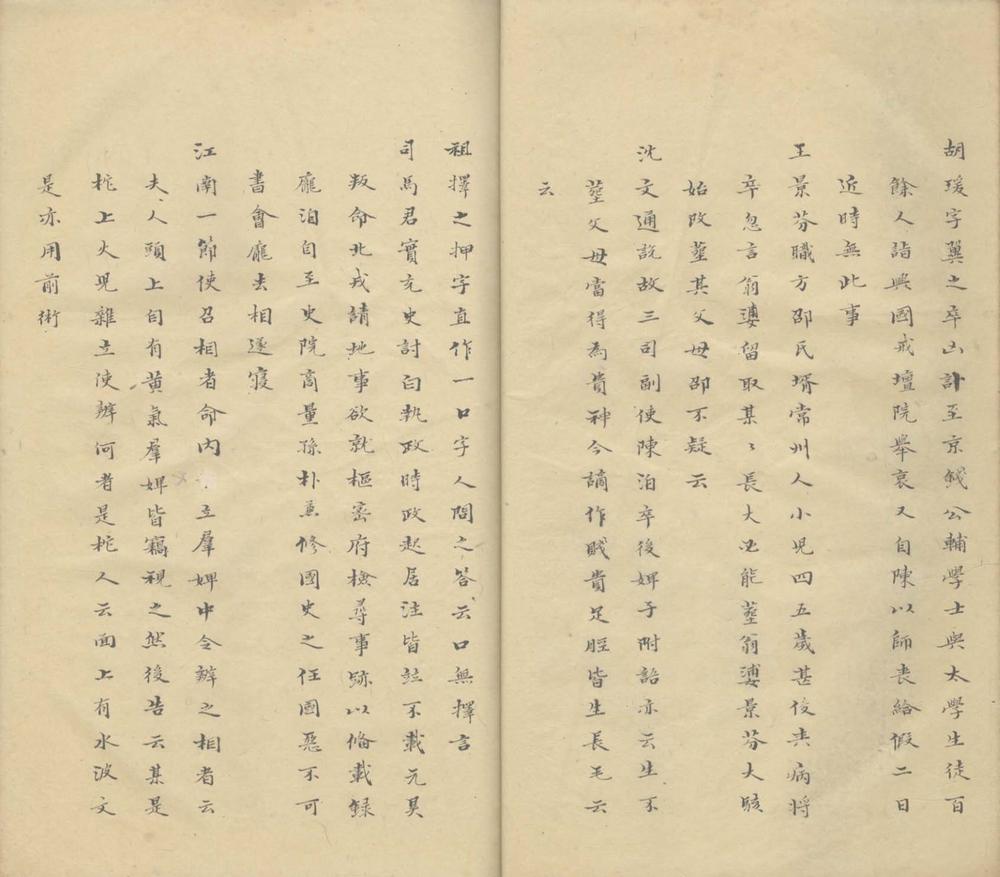 胡瑗字翼之卒凶訃至京錢公輔學士與太學生徒百
餘人詣興國戒壇院舉哀又自陳以師喪給假二日
近時無此事
王景芬職方邵氏壻常州人小兒四五歲甚俊夾病將
卒忽言翁婆留取某〻長大必能塟翁婆景芬大駭
始改塟其父母邵不疑云
沈文通說故三司副使陳洎卒後婢子附語亦云生不
塟父母當得為貴神今謫作賤貴足脛皆生長毛云
云
祖擇之押字直作一口字人問之答云口無擇言
司馬君實充史討白執政時政起居注皆竝不載元昊
叛命北戎請地事欲就樞密府檢尋事跡以俻載錄
龐洎自至史院商量孫朴兼修國史之任國惡不可
書會龐去相遂寢
江南一節使召相者命內立羣婢中令辨之相者云
夫人頭上自有黄氣羣婢皆竊視之然後告云某是
柁上火兒雜立使辨何者是柁人云面上有水波文
是亦用前術